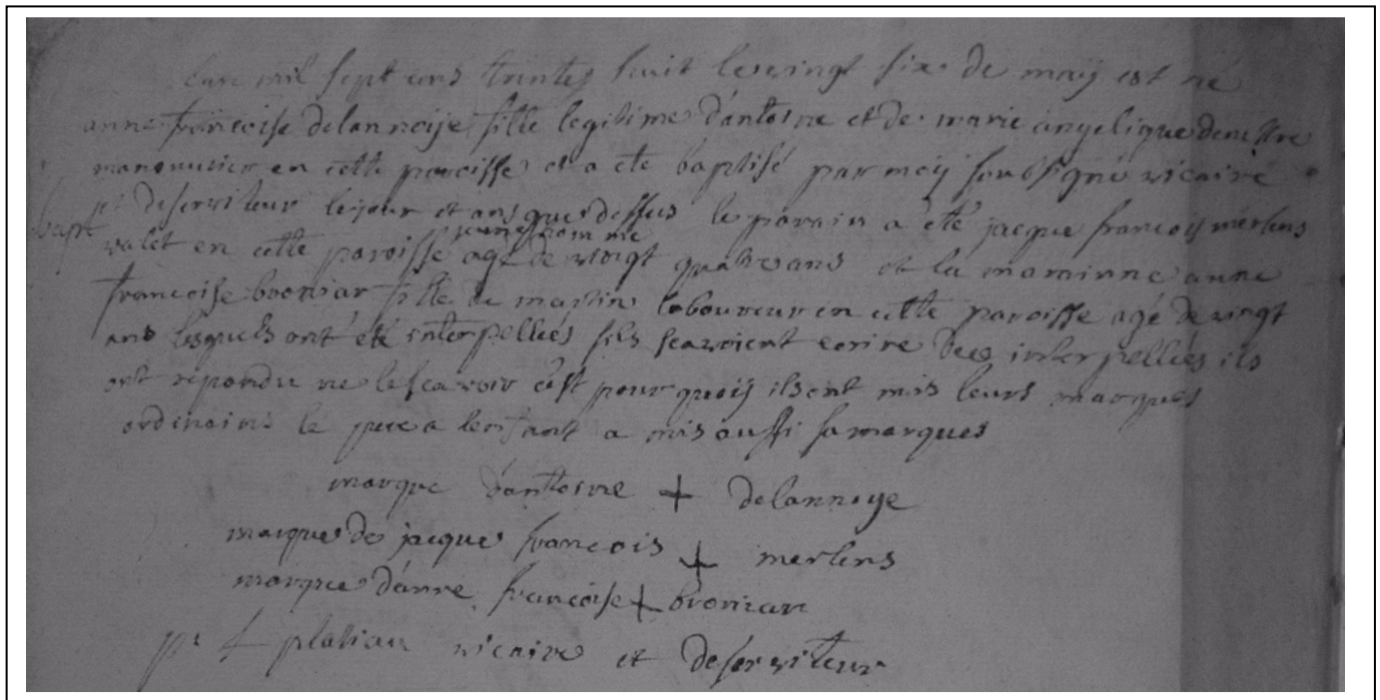 lan mil sept cens trentes huit le vingt six de maÿ est né
anne francoise delannoije fille legitime d'antoine et de marie angelique
manouvrier en cette paroisse et a ete baptisé par moÿ soubsigné vicaire
et deserviteur le jour et ans que dessus le parain a été jacque francois merlens
bapt
jeune homme
valet en cette paroisse agé de vingt quatre ans et la marinne anne
francoise broniar fille de martin laboureur en cette paroisse agé de vingt
ans lesquels ont été interpellés sils scavoient ecrire de ce interpellés ils
ont repondu ne le scavoir c'est pourquoij ils ont mis leurs marques
ordinairs le pere a lenfant a mis aussi sa marques
marque d'antoine + delannoye
marque de jacque francois + merlens
marque d'anne francoise + broniar
p: f platiau vicaire et deserviteur